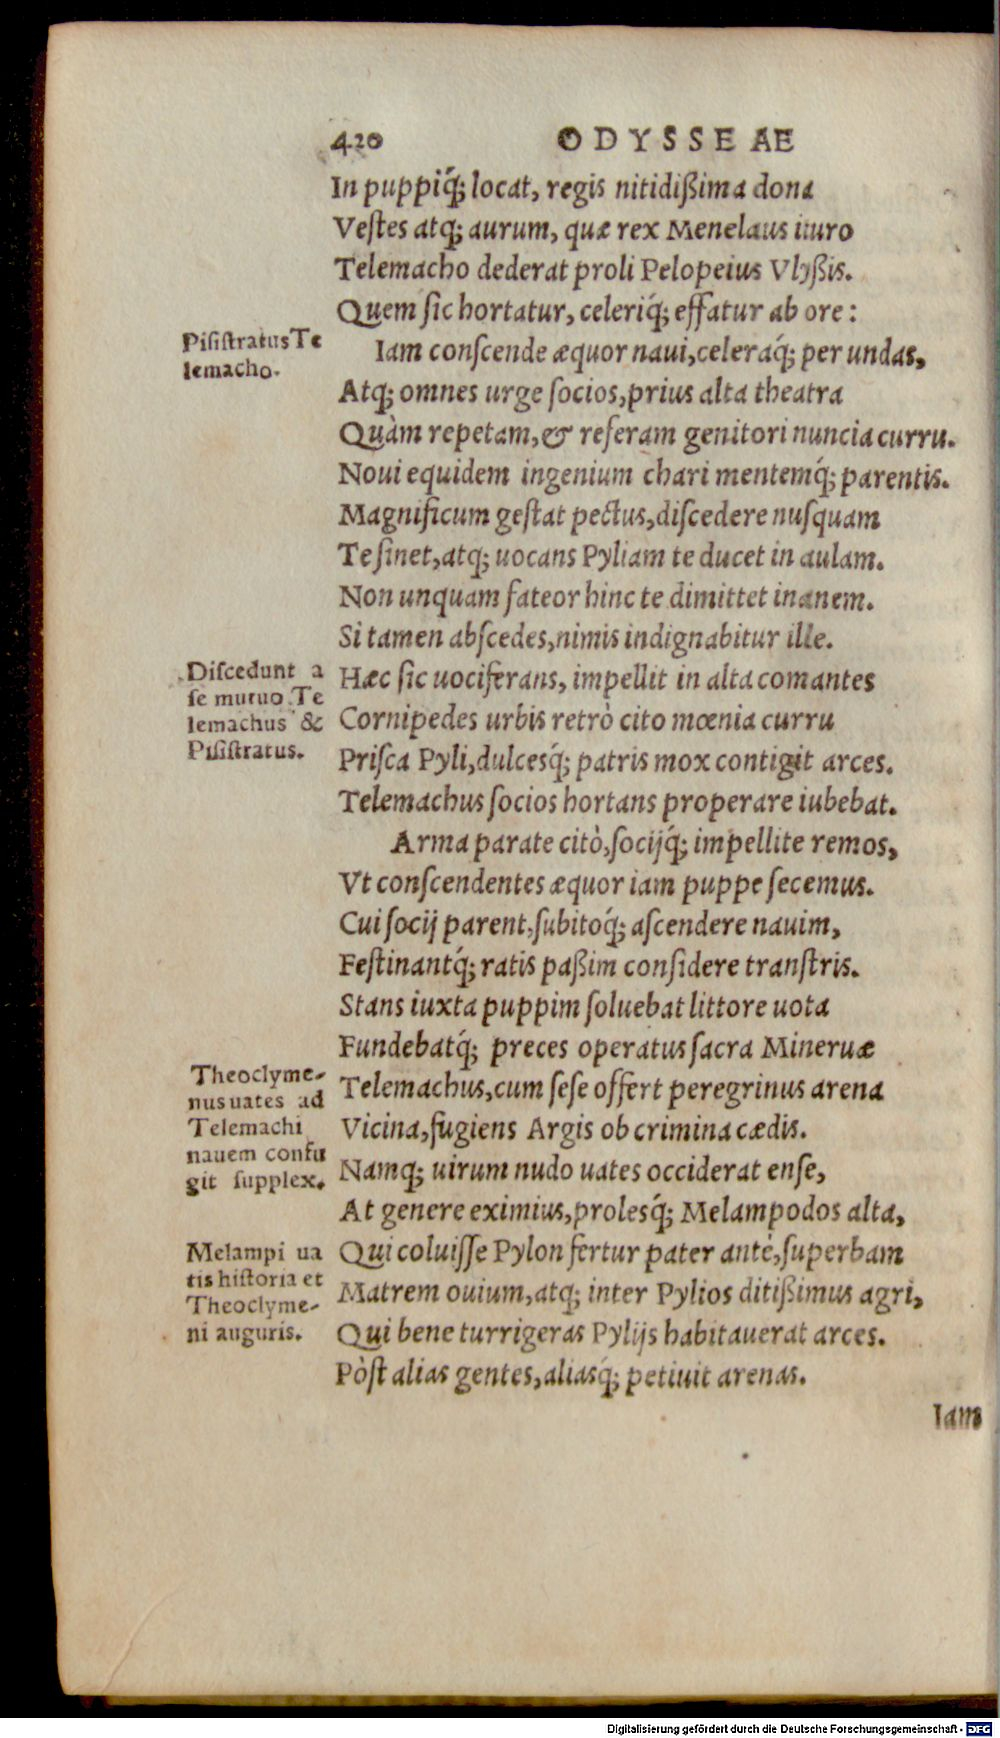 420 ODYSSEAE
In puppiq́; locat, regis nitidißima dona
Vestes atq; aurum, quæ rex Menelaus ituro
Telemacho dederat proli Pelopeius Vlyßis.
Quem sic hortatur, celeriq́; effatur ab ore:
Pisistratus Te
lemacho.
Iam conscende æquor naui, celeraq́; per undas,
Atq; omnes urge socios, prius alta theatra
Quàm repetam, & referam genitori nuncia curru.
Noui equidem ingenium chari mentemq́; parentis.
Magnificum gestat pectus, discedere nusquam
Te sinet, atq; uocans Pyliam te ducet in aulam.
Non unquam fateor hinc te dimittet inanem.
Si tamen abscedes, nimis indignabitur ille.
Discedunt a
se mutuo Te
lemachus &
Pisistratus.
Hæc sic uociferans, impellit in alta comantes
Cornipedes urbis retrò cito mœnia curru
Prisca Pyli, dulcesq́; patris mox contigit arces.
Telemachus socios hortans properare iubebat.
Arma parate citò, socijq́; impellite remos,
Vt conscendentes æquor iam puppe secemus.
Cui socij parent, subitoq́; ascendere nauim,
Festinantq́; ratis paßim considere transtris.
Stans iuxta puppim soluebat littore uota
Fundebatq́; preces operatus sacra Mineruæ
Theoclyme-
nus uates ad
Telemachi
nauem confu
git supplex.
Telemachus, cum sese offert peregrinus arena
Vicina, fugiens Argis ob crimina cædis.
Namq; uirum nudo uates occiderat ense,
At genere eximius, prolesq́; Melampodos alta,
Melampi ua
tis historia et
Theoclyme-
ni auguris.
Qui coluisse Pylon fertur pater antè, superbam
Matrem ouium, atq; inter Pylios ditißimus agri,
Qui bene turrigeras Pylijs habitauerat arces.
Pòst alias gentes, aliasq́; petiuit arenas.
Iam
Digitalisierung gefördert durch die Deutsche Forschungsgemeinschaft - DFG